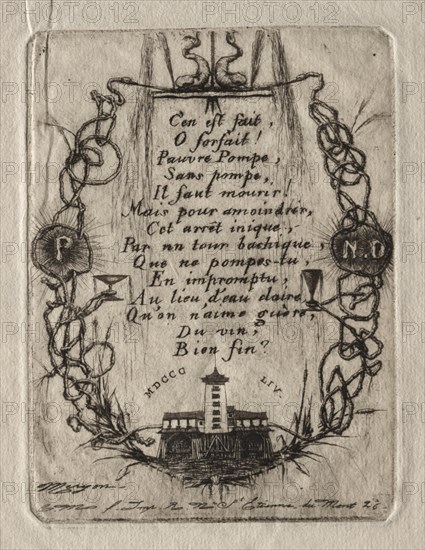 C'en est fait,
O forfait!
Pauvre Pompe,
Sans pompe,
Il faut mourir!
Mais pour amoindrir,
Cet arrêt inique,
Par un tour bachique,
P
N.D
Que ne pompes-tu,
En impromptu,
Au lieu d'eau claire,
Qu'on n'aime guère,
Du vin,
Bien fin?
MDCCC LIV.
Meryon f.
Imp. R. Nve St Etienne du Mont 26.
PHOTO12